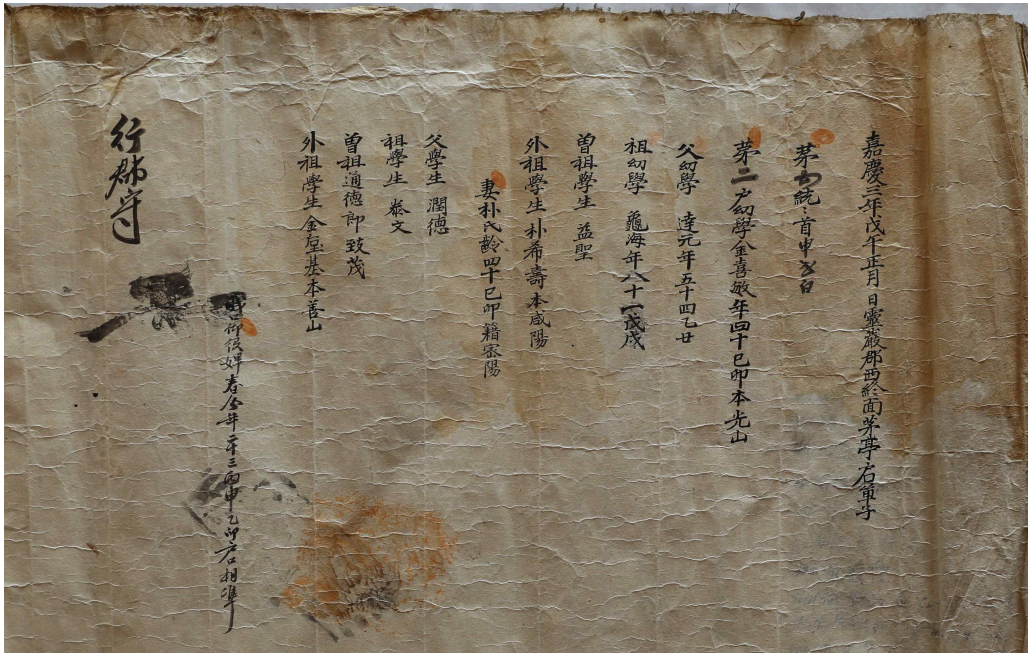 嘉慶三年戊午正月 日靈巖郡西終面茅亭户口單子
第 統統首申
第二户幼學金喜敏年四十己卯本光山
父幼學 達元年五十四乙丑
祖幼學 龜海年八十一戊戌
曽祖學生 益聖
外祖學生朴希壽本咸陽
妻朴氏齡四十己卯籍密陽
父學生 潤德
祖學生 泰文
曽祖通德郎致茂
外祖學生金 基本善山
仰役婢春 年二十三丙申乙卯户口相準
行郡守